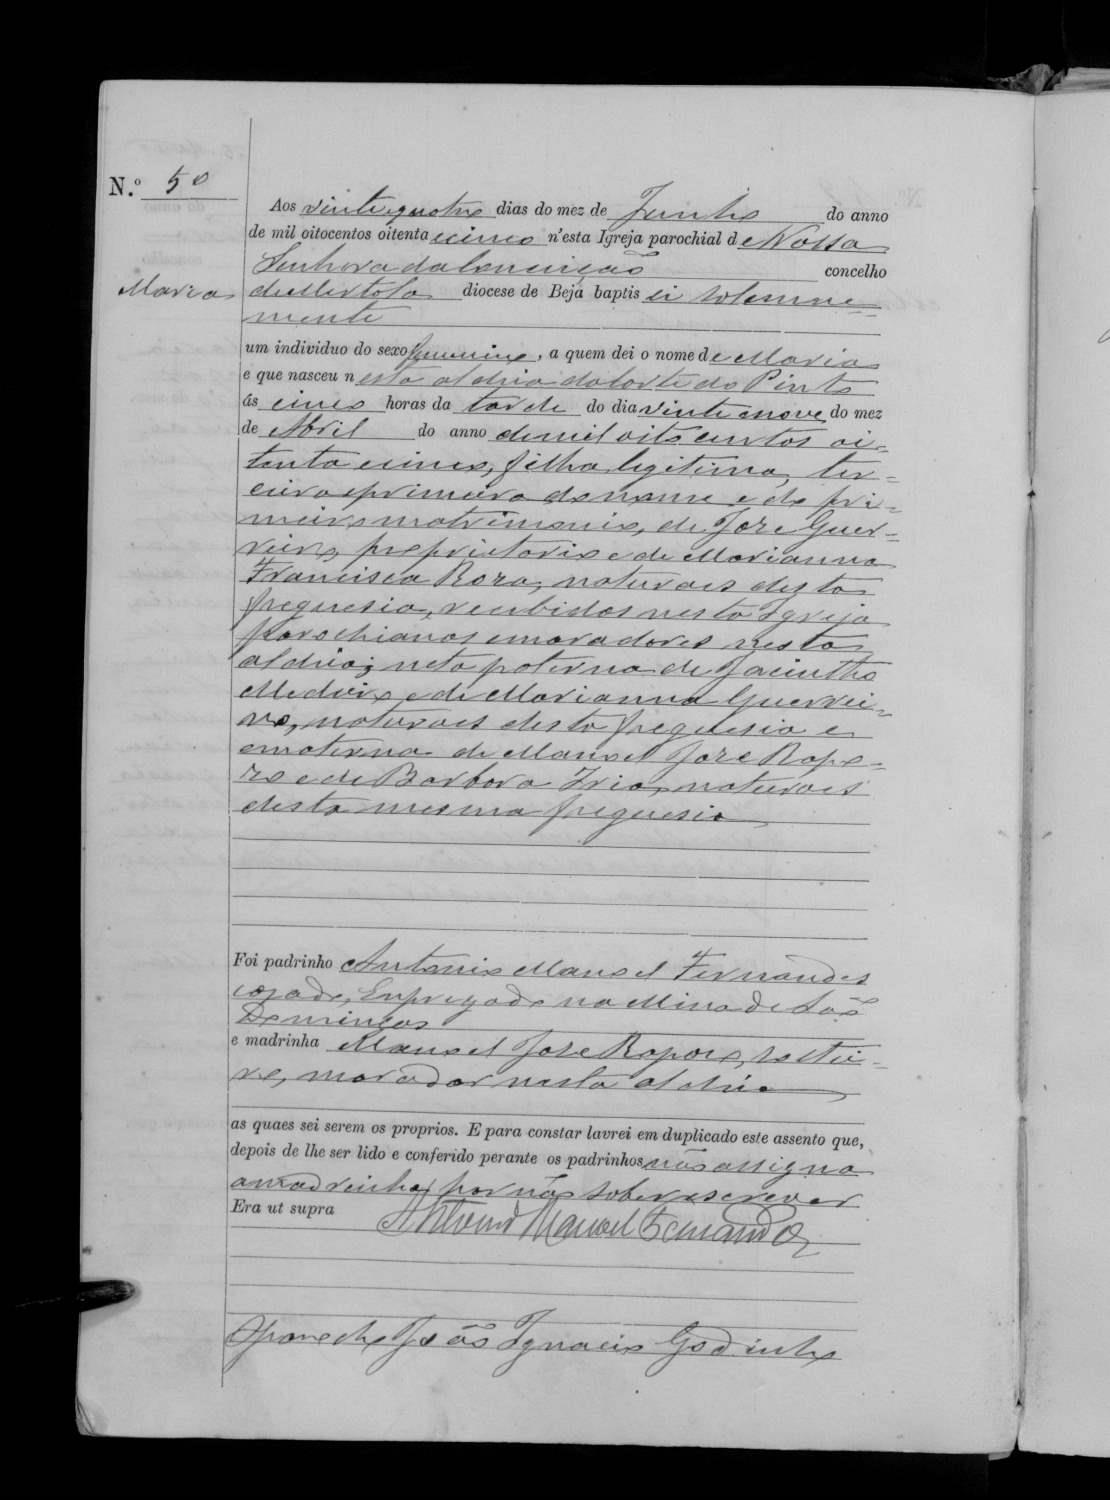 N.º 50
Aos vinte e quatro dias do mez de Junho do anno
de mil oitocentos oitenta e cinco n'esta Igreja parochial de Nossa
Senhora da Conceição concelho
Maria
de Mertola diocese de Beja baptisei solemne=
mente
um individuo do sexo femenino, a quem dei o nome de Maria
e que nasceu nesta aldeia da Corte do Pinto
ás cinco horas da tarde do dia vinte e nove do mez
de Abril do anno de mil oito centos oi-
tenta e cinco, filha legitima, ter=
ceira e primeira do nome e do pri=
meiro matrimonio, de Jozé Guer=
reiro, proprietario e de Marianna
Francisca Roza, naturaes desta
freguesia, recebidos nesta Igreja
parochianos e moradores nesta
aldeia; neta paterna de Jacintho
Medeiro e de Marianna Guerrei=
ro, naturaes desta freguesia e
materna de Manoel Jozé Rapo=
zo e de Barbora Iria, naturaes
desta mesma freguesia
Foi padrinho Antonio Manoel Fernandes
cazado, Empregado na Mina de São
Domingos
e madrinha Manoel Jozé Rapozo, soltei=
ro, morador nesta aldeia
as quaes sei serem os proprios. E para constar lavrei em duplicado este assento que,
depois de lhe ser lido e conferido perante os padrinhos não assigna
a madrinha por não saber escrever
Era ut supra Antonio Manoel Fernandes
O parocho João Ignacio Godinho